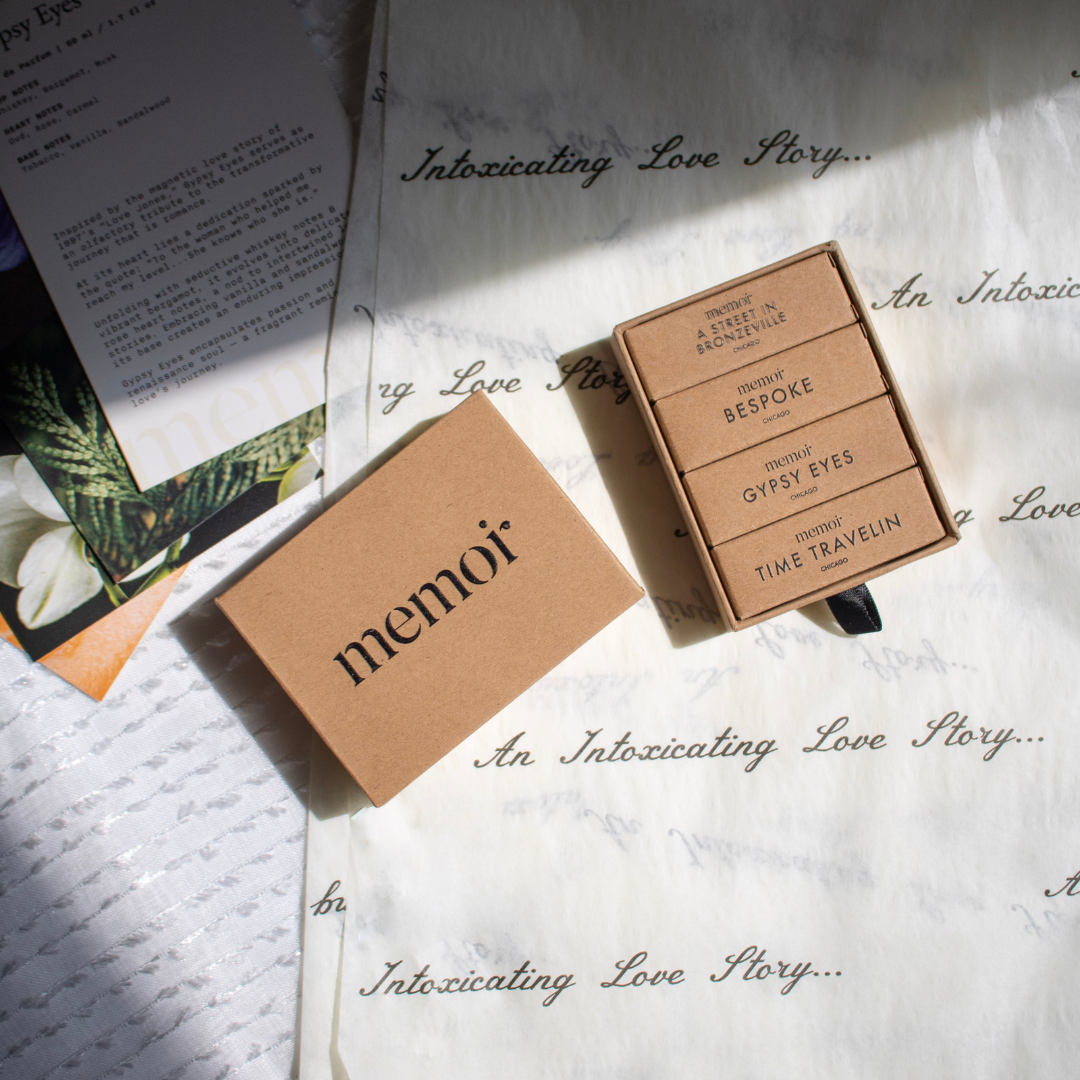 psy Eyes
de Parfum | 50 ml / 1.7 fl oz
P NOTES
hiskey, Bergamot, Musk
HEART NOTES
Oud, Rose, Carmel
BASE NOTES
Tobacco, Vanilla, Sandalwood
Inspired by the magnetic love story of
1997's "Love Jones," Gypsy Eyes serves as
an olfactory tribute to the transformative
journey that is romance.
At its heart lies a dedication sparked by
the quote: "To the woman who helped me
reach my level...She knows who she is."
Unfolding with seductive whiskey notes &
vibrant bergamot, it evolves into delicat
rose heart notes, a nod to intertwined
stories. Embracing vanilla and sandalw
its base creates an enduring impressi
Gypsy Eyes encapsulates passion and
renaissance soul — a fragrant remi
love's journey.
mem
Intoxicating Love Story...
An Intoxic
ng Love Story
memoir
A STREET IN
BRONZEVILLE
CHICAGO
memoir
BESPOKE
CHICAGO
memoir
GYPSY EYES
CHICAGO
memoir
TIME TRAVELIN
CHICAGO
g Love
memoir
An Intoxicating Love Story...
A
Intoxicating Love Story...